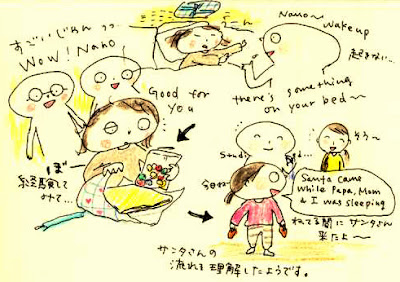 すごいじゃん
WOW! Nano
うーん
Nano〜
wake up
起きない…
there's something
on your bed〜
Good for
you
ぼー
経験して
みて…
Study
今日ね…
そう〜
Santa came
while Papa, Mom
& I was sleeping
ねてる間にサンタさん
来たよ〜
サンタさんの
流れを理解したようです。